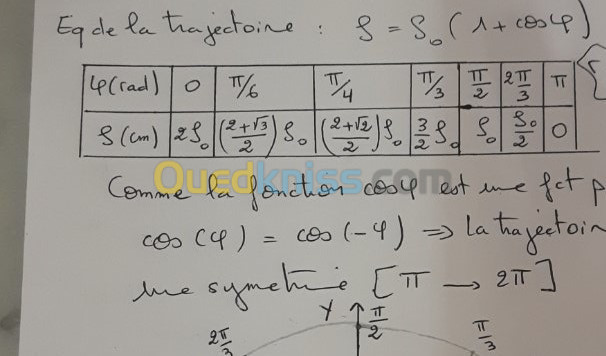 Eq de la trajectoire : ρ = ρ₀ (1 + cosφ)
φ(rad) 0 π/6 π/4 π/3 π/2 2π/3 π
ρ(cm) 2ρ₀ ((2+√3)/2)ρ₀ ((2+√2)/2)ρ₀ 3/2 ρ₀ ρ₀ ρ₀/2 0
Ouedkniss.com
Comme la fonction cosφ est une fct p
cos(φ) = cos(-φ) ⇒ la trajectoir
une symetrie [π → 2π]
Y π/2
2π/3 π/3